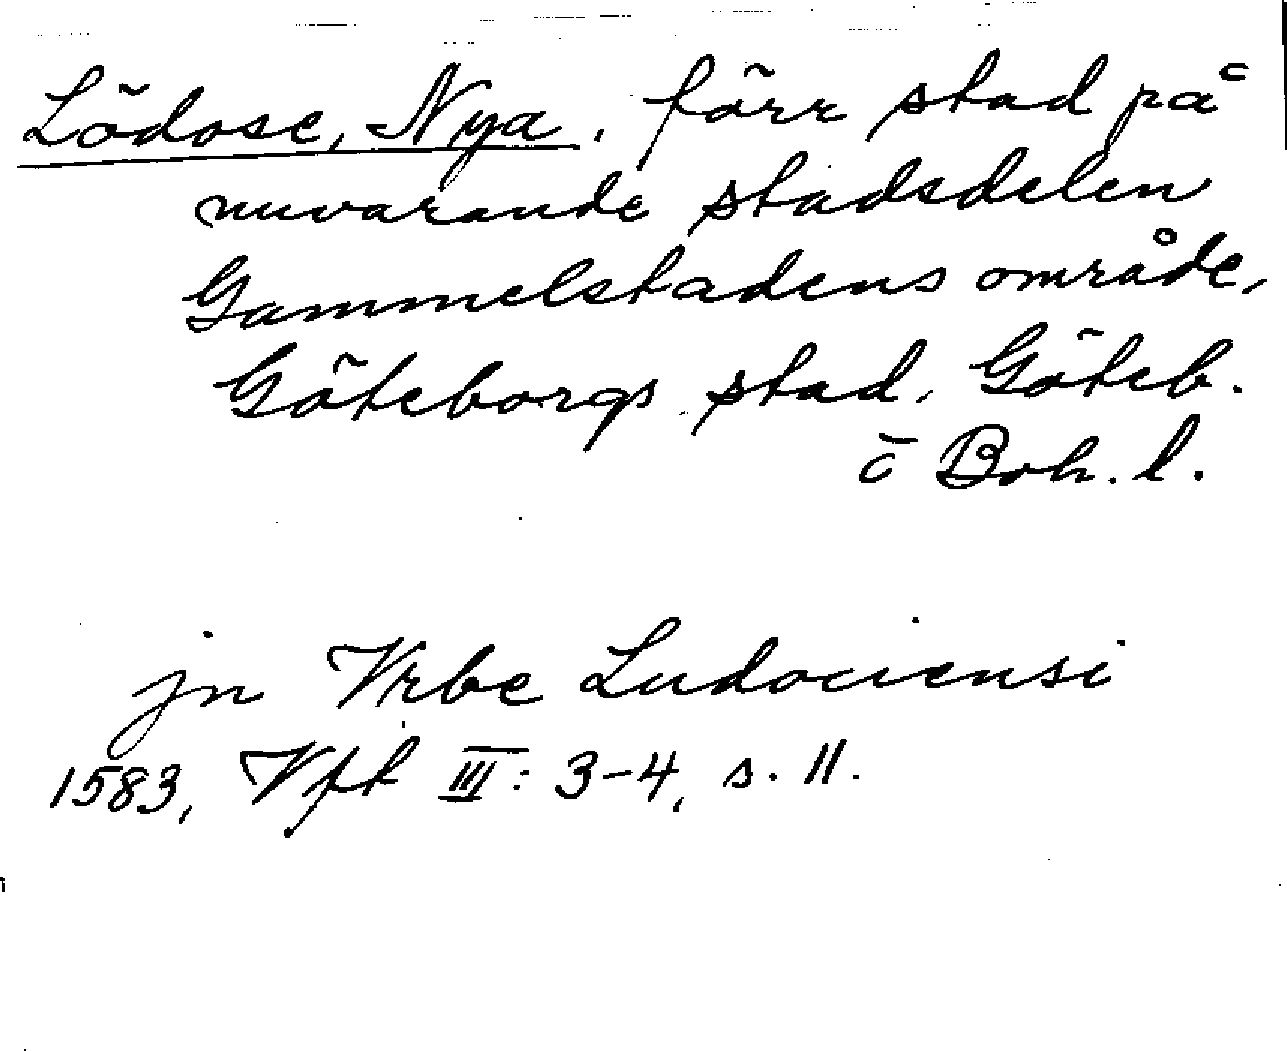 Lödose, Nya, förr stad på
nuvarande stadsdelen
Gammelstadens område,
Göteborgs stad, Göteb.
o Boh. l.
jn Vrbe Ludouiensi
1583, Vfk III: 3-4, s. 11.